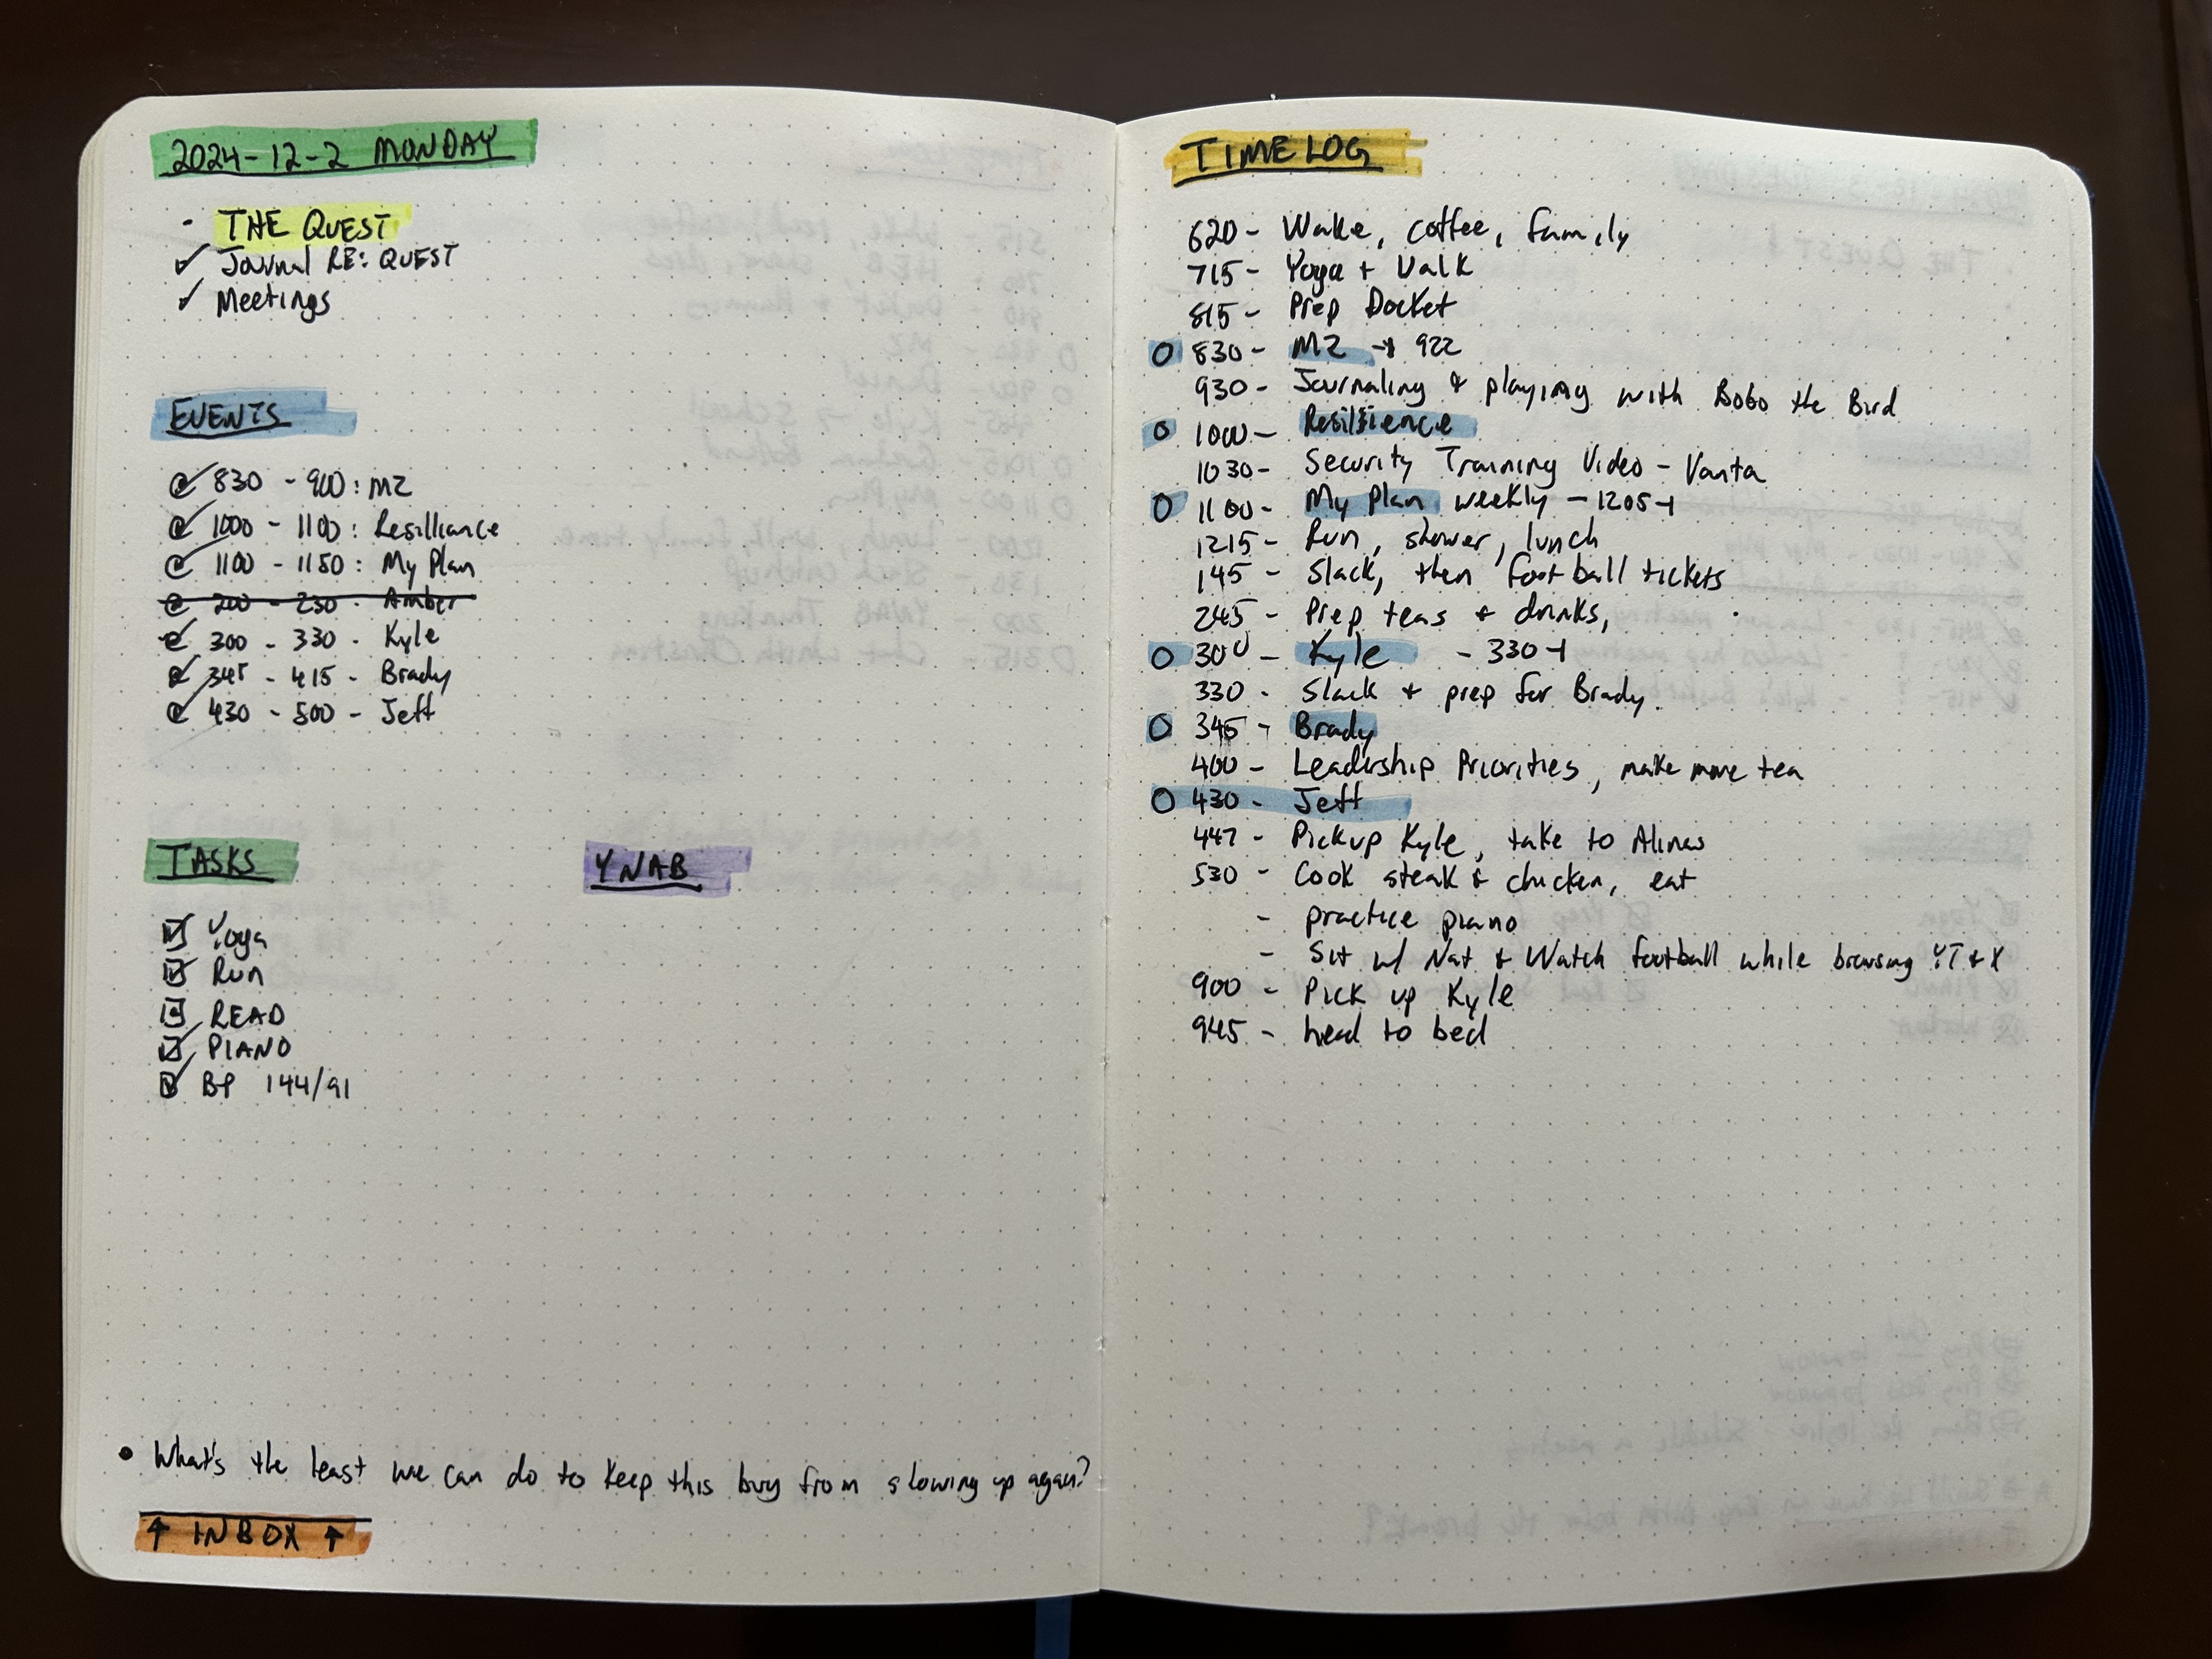 2024-12-2 MONDAY
- THE QUEST
✓ Journal RE: QUEST
✓ Meetings
EVENTS
830 - 900: MZ
1000 - 1100: Resilliance
1100 - 1150: My Plan
200 - 230 - Amber
300 - 330 - Kyle
345 - 415 - Brady
430 - 500 - Jeff
TASKS
Yoga
Run
READ
PIANO
BP 144/91
YNAB
• What's the least we can do to keep this bug from showing up again?
↑ INBOX ↑
TIME LOG
620 - Wake, coffee, family
715 - Yoga + Walk
815 - Prep Docket
830 - MZ → 922
930 - Journaling & playing with Bobo the Bird
1000 - Resilience
1030 - Security Training Video - Vanta
1100 - My Plan weekly - 1205
1215 - Run, shower, lunch
145 - Slack, then football tickets
245 - Prep teas & drinks,
300 - Kyle - 330
330 - Slack + prep for Brady.
345 - Brady
400 - Leadership Priorities, make more tea
430 - Jeff
447 - Pickup Kyle, take to
530 - Cook steak & chicken, eat
- practice piano
- Sit w/ Nat & Watch football while browsing YT & X
900 - Pick up Kyle
945 - head to bed